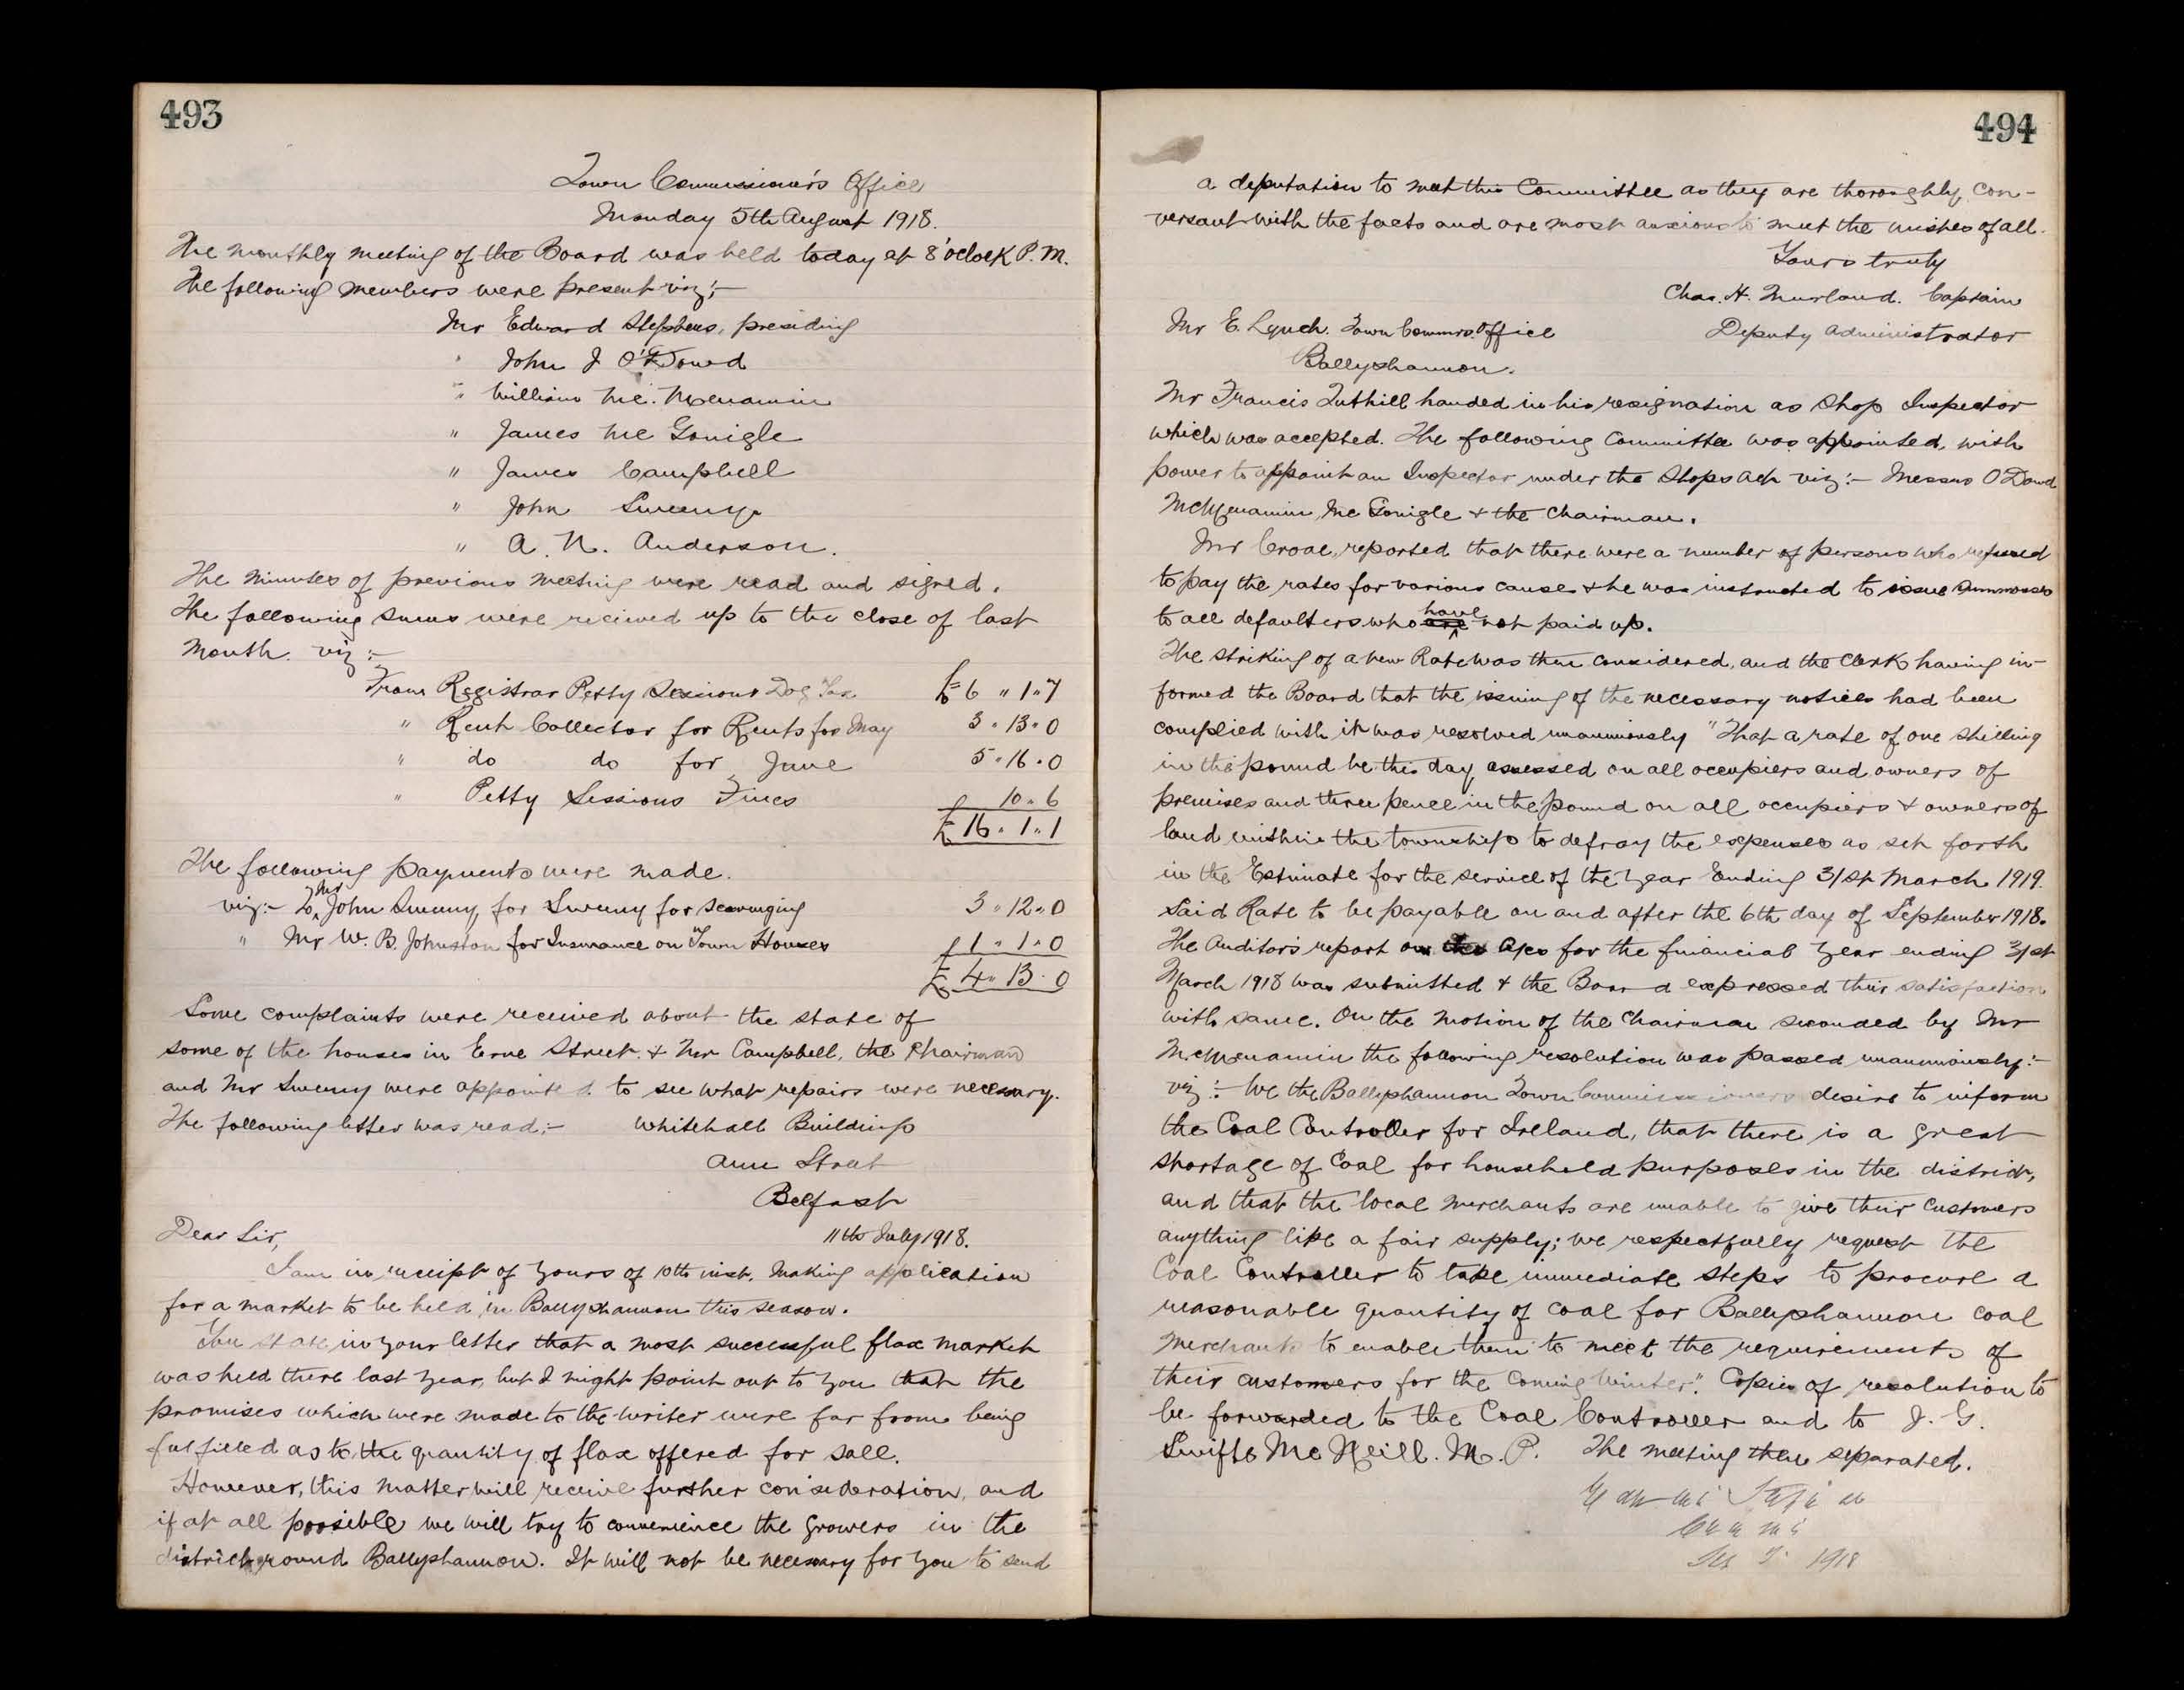 493
Town Commissioners Office
Monday 5th August 1918.
The monthly meeting of the Board was held today at 8 'oclock P.M.
The following members were present viz:-
Mr Edward Stephens, presiding
" John J O'Dowd
" William Mc. Menamin
" James Mc Gonigle
" James Campbell
" John Sweeny
" A. N. Anderson.
The minutes of previous meeting were read and signed.
The following sums were received up to the close of last
Month. viz:-
From Registrar Petty Sessions Dog Tax £6 " 1 " 7
" Rent Collector for Rents for May 3 " 13 " 0
" do do for June 5 " 16 " 0
" Petty Sessions Fines 10 " 6
£ 16 " 1 " 1
The following payments were made.
viz:- To Mr John Sweeny, for Sweeny for scavenging 3 " 12 " 0
" Mr W. B. Johnston for Insurance on Town Houses 1 " 1 " 0
£ 4 " 13 " 0
Some complaints were received about the state of
some of the houses in Erne Street. & Mr Campbell, the Chairman
and Mr Sweeny were appointed to see what repairs were necessary.
The following letter was read:- Whitehall Buildings
Ann Street
Belfast
Dear Sir, 11th July 1918.
I am in receipt of yours of 10th inst. Making application
for a market to be held in Ballyshannon this season.
You state in your letter that a most successful flax market
was held there last year, but I might point out to you that the
promises which were made to the writer were far from being
fulfilled as to the quantity of flax offered for sale.
However, this matter will receive further consideration, and
if at all possible we will try to convenience the growers in the
district round Ballyshannon. It will not be necessary for you to send
494
a deputation to meet this Committee as they are thoroughly con-
versant with the facts and are most anxious to meet the wishes of all.
Yours truly
Chas. H. Murland. Captain
Mr E. Lynch. Town Commrs. Office Deputy Administrator
Ballyshannon.
Mr Francis Tuthill handed in his resignation as Shop Inspector
which was accepted. The following Committee was appointed, with
power to appoint an Inspector under the Shops Act viz:- Messrs O'Dowd
McMenamin, Mc Gonigle & the Chairman.
Mr Croal, reported that there were a number of persons who refused
to pay the rates for various cause & he was instructed to issue Summonses
to all defaulters who are have not paid up.
The striking of a new Rate was then considered, and the Clerk having in-
formed the Board that the issuing of the necessary notices had been
complied with it was resolved unanimously "That a rate of one shilling
in the pound be this day assessed on all occupiers and owners of
premises and three pence in the pound on all occupiers & owners of
land within the township to defray the expenses as set forth
in the Estimate for the service of the Year Ending 31st March 1919.
Said Rate to be payable on and after the 6th day of September 1918.
The Auditor's report on the a/cs for the financial Year ending 31st
March 1918 was submitted & the Board expressed their satisfaction
with same. On the motion of the Chairman seconded by Mr
McMenamin the following resolution was passed unanimously:-
viz:- We the Ballyshannon Town Commissioners desire to inform
the Coal Controller for Ireland, that there is a great
shortage of Coal for household purposes in the district,
and that the local merchants are unable to give their customers
anything like a fair supply; we respectfully request the
Coal Controller to take immediate steps to procure a
reasonable quantity of coal for Ballyshannon coal
merchants to enable them to meet the requirements of
their customers for the Coming Winter". Copies of resolution to
be forwarded to the Coal Controller and to J. G.
Swifte Mc Neill. M. P. The meeting then separated.
1918